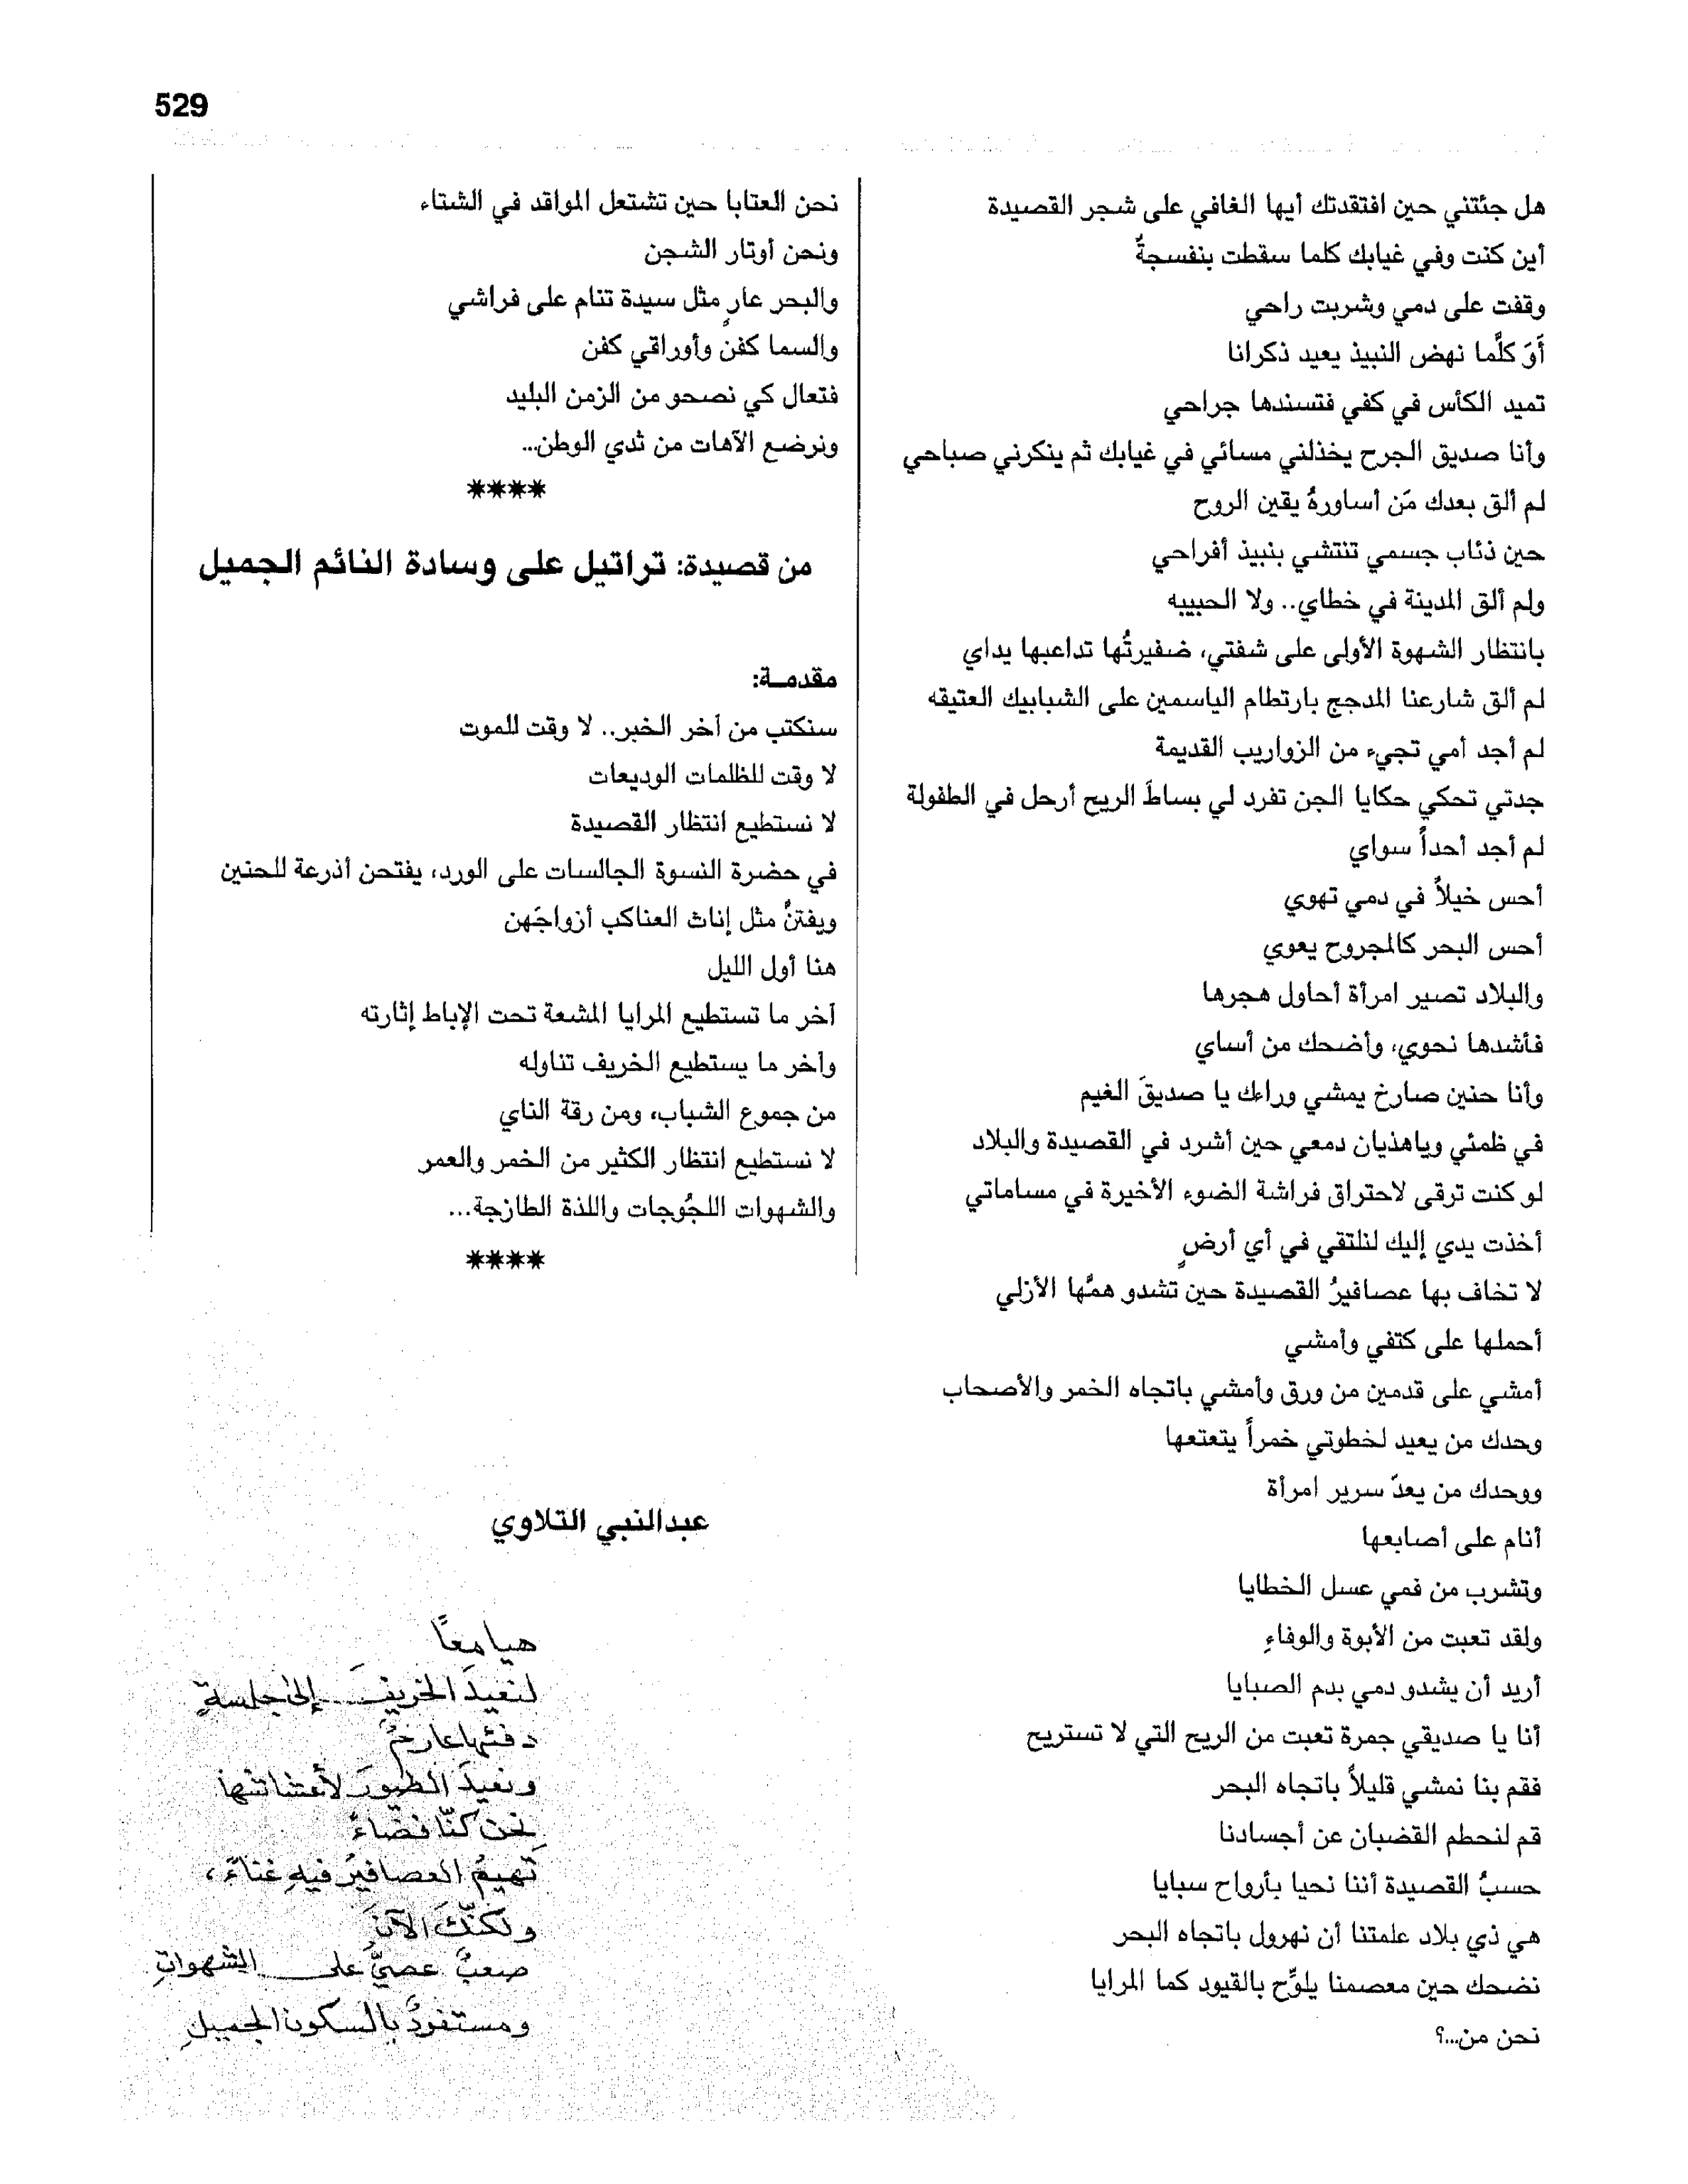 529
هل جئتني حين افتقدتك أيها الغافي على شجر القصيدة
أين كنت وفي غيابك كلما سقطت بنفسجةٌ
وقفت على دمي وشربت راحي
أَوَ كلَّما نهض النبيذ يعيد ذكرانا
تميد الكأس في كفي فتسندها جراحي
وأنا صديق الجرح يخذلني مسائي في غيابك ثم ينكرني صباحي
لم ألق بعدك مَن أساورهُ يقين الروح
حين ذئاب جسمي تنتشي بنبيذ أفراحي
ولم ألق المدينة في خطاي.. ولا الحبيبه
بانتظار الشهوة الأولى على شفتي، ضفيرتُها تداعبها يداي
لم ألق شارعنا المدجج بارتطام الياسمين على الشبابيك العتيقه
لم أجد أمي تجيء من الزواريب القديمة
جدتي تحكي حكايا الجن تفرد لي بساطَ الريح أرحل في الطفولة
لم أجد أحداً سواي
أحس خيلاً في دمي تهوي
أحس البحر كالمجروح يعوي
والبلاد تصير امرأة أحاول هجرها
فأشدها نحوي، وأضحك من أساي
وأنا حنين صارخ يمشي وراءك يا صديقَ الغيم
في ظمئي وياهذيان دمعي حين أشرد في القصيدة والبلاد
لو كنت ترقى لاحتراق فراشة الضوء الأخيرة في مساماتي
أخذت يدي إليك لنلتقي في أي أرضٍ
لا تخاف بها عصافيرُ القصيدة حين تشدو همَّها الأزلي
أحملها على كتفي وأمشي
أمشي على قدمين من ورق وأمشي باتجاه الخمر والأصحاب
وحدك من يعيد لخطوتي خمراً يتعتعها
ووحدك من يعدّ سرير امرأة
أنام على أصابعها
وتشرب من فمي عسل الخطايا
ولقد تعبت من الأبوة والوفاءِ
أريد أن يشدو دمي بدم الصبايا
أنا يا صديقي جمرة تعبت من الريح التي لا تستريح
فقم بنا نمشي قليلاً باتجاه البحر
قم لنحطم القضبان عن أجسادنا
حسبُ القصيدة أننا نحيا بأرواح سبايا
هي ذي بلاد علمتنا أن نهرول باتجاه البحر
نضحك حين معصمنا يلوِّح بالقيود كما المرايا
نحن من...؟
نحن العتابا حين تشتعل المواقد في الشتاء
ونحن أوتار الشجن
والبحر عارٍ مثل سيدة تنام على فراشي
والسما كفنٌ وأوراقي كفن
فتعال كي نصحو من الزمن البليد
ونرضع الآهات من ثدي الوطن...
****
من قصيدة: تراتيل على وسادة النائم الجميل
مقدمـة:
سنكتب من آخر الخبر.. لا وقت للموت
لا وقت للظلمات الوديعات
لا نستطيع انتظار القصيدة
في حضرة النسوة الجالسات على الورد، يفتحن أذرعة للحنين
ويفتنَّ مثل إناث العناكب أزواجَهن
هنا أول الليل
آخر ما تستطيع المرايا المشعة تحت الإباط إثارته
وآخر ما يستطيع الخريف تناوله
من جموع الشباب، ومن رقة الناي
لا نستطيع انتظار الكثير من الخمر والعمر
والشهوات اللجُوجات واللذة الطازجة...
****
عبدالنبي التلاوي
هيا معاً
لنعيدَ الخريفَ إلى جلسةٍ
دفئها عارمٌ
ونعيدَ الطيورَ لأعشاشها
نحن كنّا فضاءً
تهيمُ العصافيرُ فيهِ غناءً،
ولكنّكَ الآنَ
صعبٌ عصيٌّ على الشهواتِ
ومستفردٌ بالسكون الجميلِ